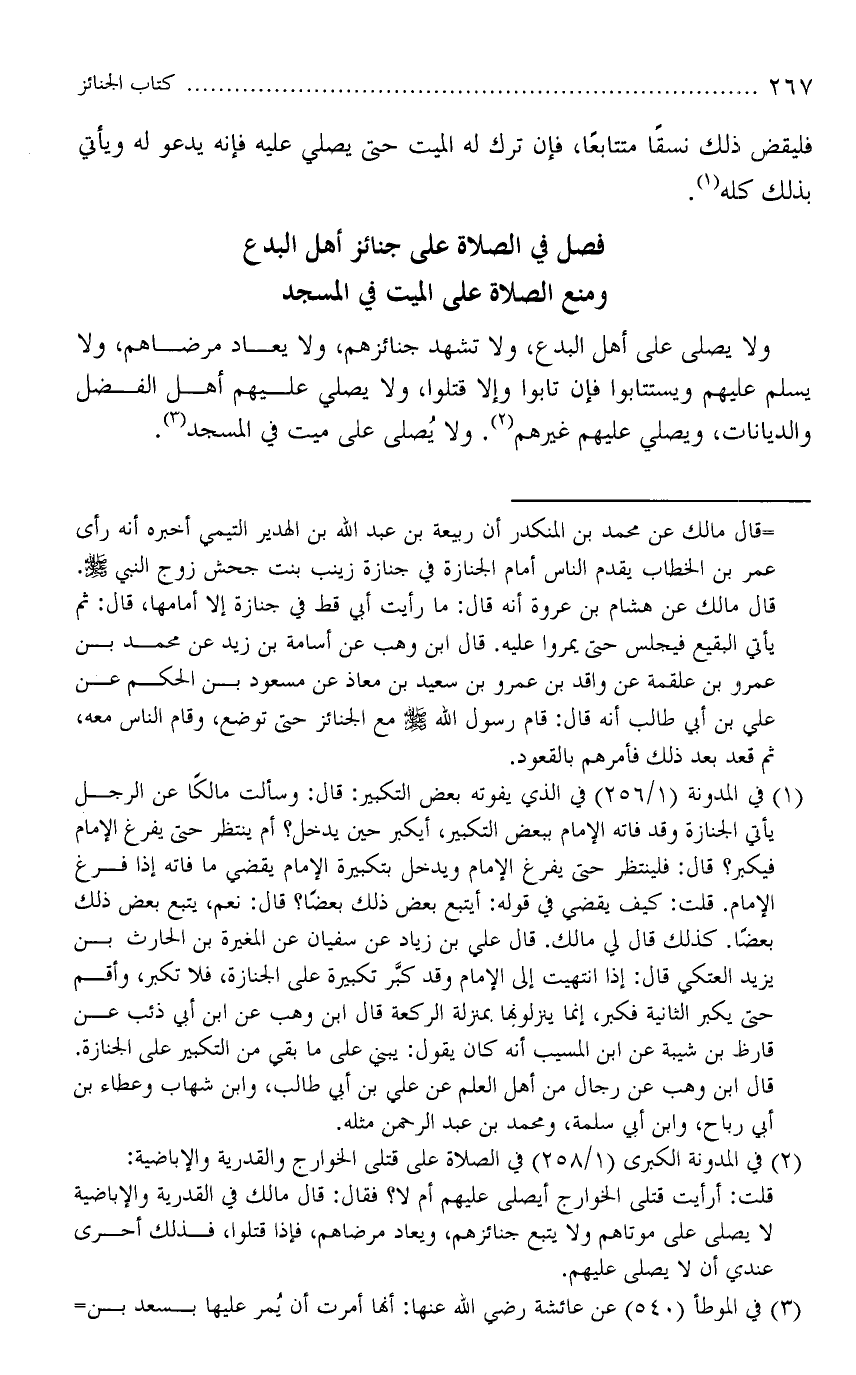 ٢٦٧ ........................................................................ كتاب الجنائز
فليقض ذلك نسقًا متتابعًا، فإن ترك له الميت حتى يصلي عليه فإنه يدعو له ويأتي
بذلك كله(١).
فصل في الصلاة على جنائز أهل البدع
ومنع الصلاة على الميت في المسجد
ولا يصلى على أهل البدع، ولا تشهد جنائزهم، ولا يعاد مرضاهم، ولا
يسلم عليهم ويستتابوا فإن تابوا وإلا قتلوا، ولا يصلي عليهم أهل الفضل
والديانات، ويصلي عليهم غيرهم(٢). ولا يُصلى على ميت في المسجد(٣).
=قال مالك عن محمد بن المنكدر أن ربيعة بن عبد الله بن الهدير التيمي أخبره أنه رأى
عمر بن الخطاب يقدم الناس أمام الجنازة في جنازة زينب بنت جحش زوج النبي ﷺ.
قال مالك عن هشام بن عروة أنه قال: ما رأيت أبي قط في جنازة إلا أمامها، قال: ثم
يأتي البقيع فيجلس حتى يمروا عليه. قال ابن وهب عن أسامة بن زيد عن محمد بن
عمرو بن علقمة عن واقد بن عمرو بن سعيد بن معاذ عن مسعود بن الحكم عن
علي بن أبي طالب أنه قال: قام رسول الله ﷺ مع الجنائز حتى توضع، وقام الناس معه،
ثم قعد بعد ذلك فأمرهم بالقعود.
(١) في المدونة (٢٥٦/١) في الذي يفوته بعض التكبير: قال: وسألت مالكًا عن الرجل
يأتي الجنازة وقد فاته الإمام ببعض التكبير، أيكبر حين يدخل؟ أم ينتظر حتى يفرغ الإمام
فيكبر؟ قال: فلينتظر حتى يفرغ الإمام ويدخل بتكبيرة الإمام يقضي ما فاته إذا فرغ
الإمام. قلت: كيف يقضي في قوله: أيتبع بعض ذلك بعضًا؟ قال: نعم، يتبع بعض ذلك
بعضًا. كذلك قال لي مالك. قال علي بن زياد عن سفيان عن المغيرة بن الحارث بن
يزيد العتكي قال: إذا انتهيت إلى الإمام وقد كبَّر تكبيرة على الجنازة، فلا تكبر، وأقم
حتى يكبر الثانية فكبر، إنما ينزلونها بمنزلة الركعة قال ابن وهب عن ابن أبي ذئب عن
قارظ بن شيبة عن ابن المسيب أنه كان يقول: يبني على ما بقي من التكبير على الجنازة.
قال ابن وهب عن رجال من أهل العلم عن علي بن أبي طالب، وابن شهاب وعطاء بن
أبي رباح، وابن أبي سلمة، ومحمد بن عبد الرحمن مثله.
(٢) في المدونة الكبرى (٢٥٨/١) في الصلاة على قتلى الخوارج والقدرية والإباضية:
قلت: أرأيت قتلى الخوارج أيصلى عليهم أم لا؟ فقال: قال مالك في القدرية والإباضية
لا يصلى على موتاهم ولا يتبع جنائزهم، ويعاد مرضاهم، فإذا قتلوا، فذلك أحرى
عندي أن لا يصلى عليهم.
(٣) في الموطأ (٥٤٠) عن عائشة رضي الله عنها: أنها أمرت أن يُمر عليها بسعد بن=